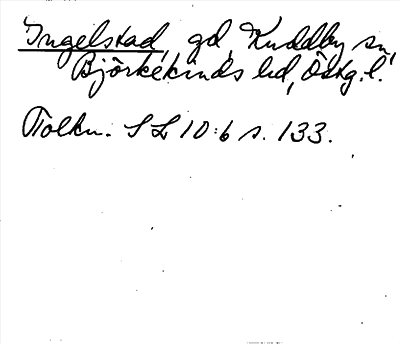 Ingelstad, gd, Kuddby sn,
Björkekinds hd, Östg.l.
Tolkn. SL 10:6 s. 133.